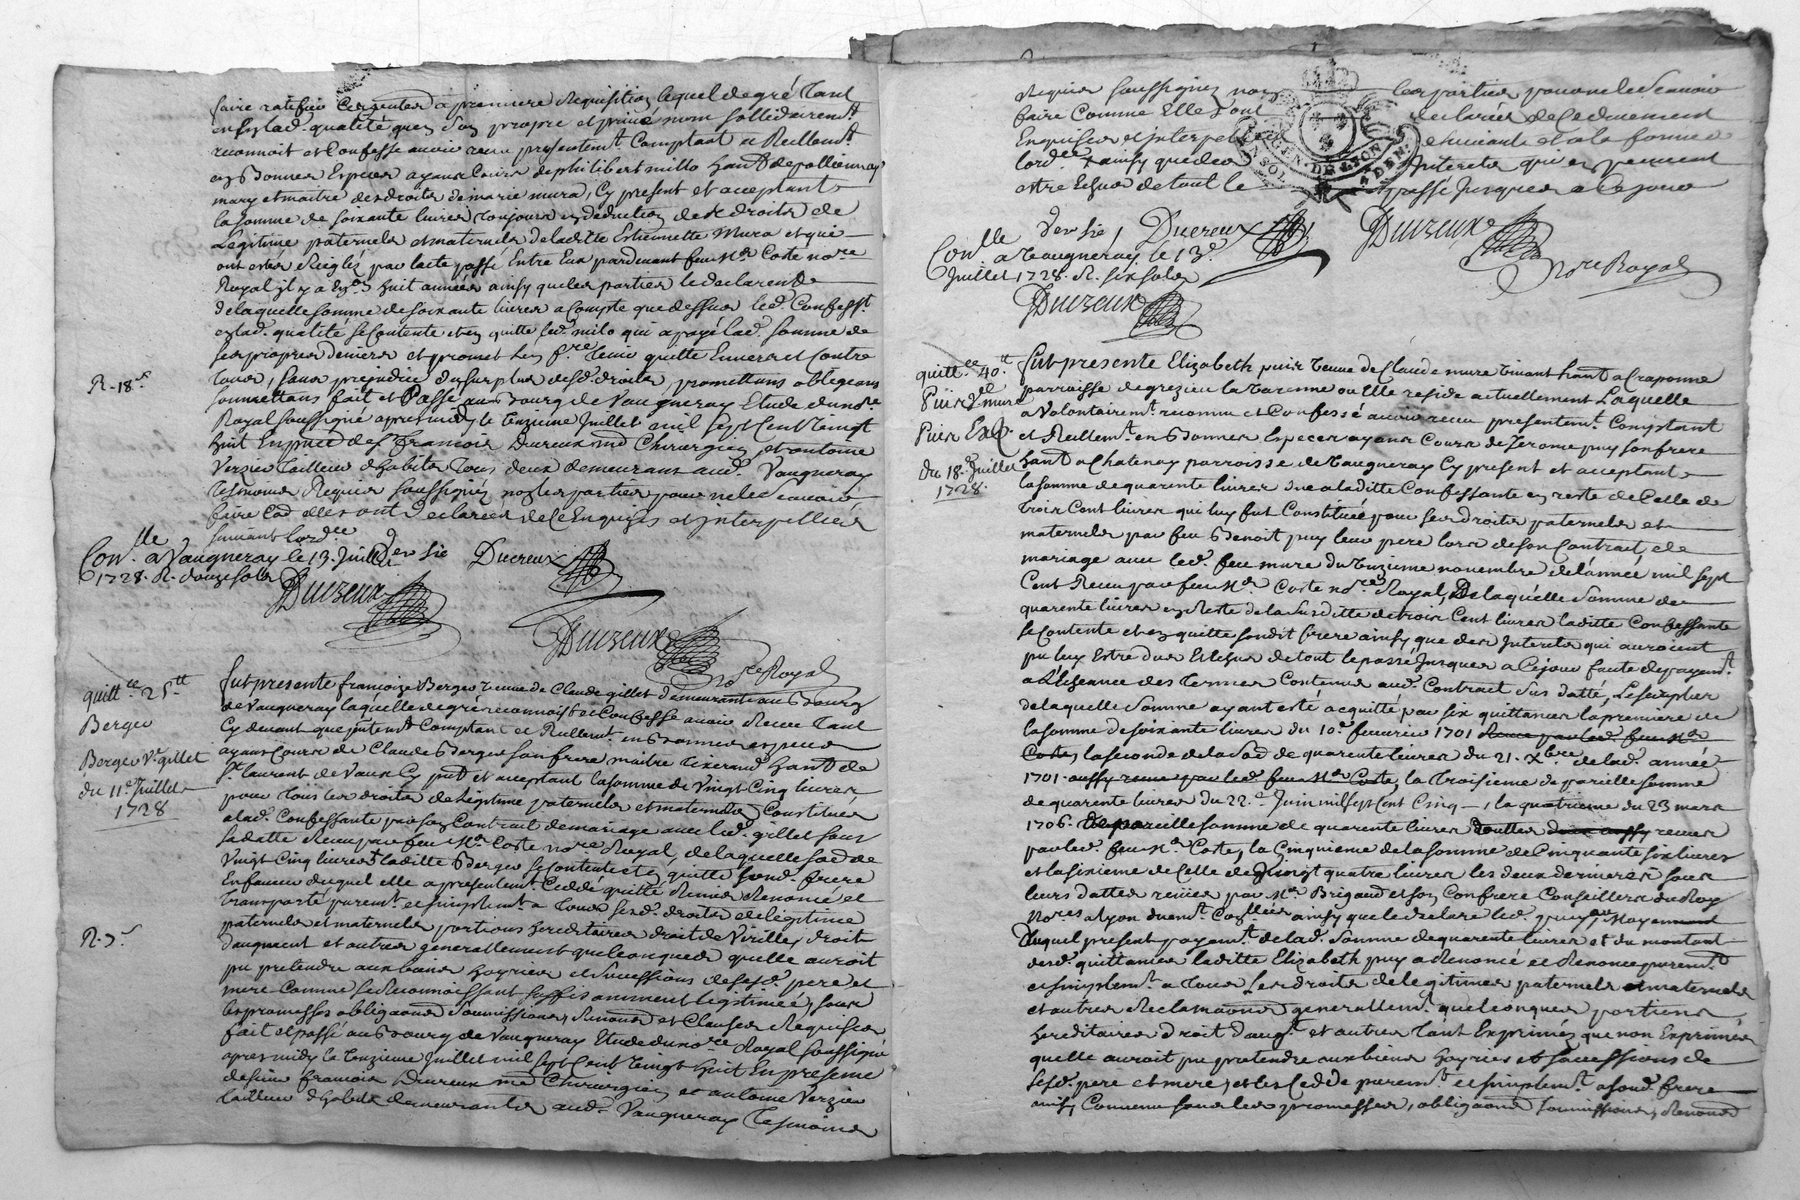 faire ratifier a premiere Requisition Lequel de gré tant
en sad. qualité que son propre et privé nom sollidairemt
reconnoit et Confesse avoir receu presentemt Comptant et Rellemt
en Bonnes Especes ayant Cours de philibert millo habt de pollionnay
mary et maitre des droits de marie mura, Cy present et acceptant
la somme de soixante livres toujours en deduction des droits de
Legitime paternels et maternels de laditte Estiennette Mura et qui
ont estés Reiglés par lacte passé Entre Eux pardevant feu Me Coste nore
Royal il y a huit années ainsy que les parties le declarent
de laquelle somme de soixante livres a Compte que dessus led. Confesst
ezlad. qualité se Contente et en quitte led. milo qui a payé lad. somme de
ses propres deniers et promet len fre tenir quitte Envers et Contre
tous, sans prejudice du surplus desd. droits, promettans obligeans
soumettans fait et Passé au Bourg de Vaugneray Etude du nore
R. 18s
Royal soussigné apres midy le unzieme Juillet mil sept Cent vingt
huit En puce de Sr francois Ducreux md Chirurgien et antoine
Verzier tailleur dhabits tous deux demeurans aud. Vaugneray
tesmoins Requis soussignés non les parties pour ne le scavoir
faire Comme elles ont Declarées de ce Enquises et interpellées
suivant lordce
Conlle a Vaugneray le 13. Juillet
1728. R. douze sols
Versie Ducreux
Duizeux
Duizeux
nore Royal
quittce 25tt
Berger
Berger Ve gillet
du 11e Juillet
1728
fut presente francoize Berger veuve de Claude gillet demeurante au Bourg
de Vaugneray laquelle de gré reconnoist et Confesse avoir Receu tant
Cy devant que pntemt Comptant et Rellemt en Bonnes especes
ayant Cours de Claude Berger son frere maitre tixerand habt de
St laurent de Vaux Cy pnt et acceptant la somme de Vingt Cinq livres
pour tous les droits de Legitime paternels et maternels Constitués
a lad. Confessante par son Contrat de mariage avec led. gillet sous
sa datte Receu par feu Me Coste nore Royal, de laquelle sad. de
Vingt Cinq livres laditte Berger se Contente et en quitte sond. frere
En faveur duquel elle a presentement Ceddé quitté Remis Renoncé et
transporté puremt et simplemt a tous sesd. droits de legitime
paternels et maternels portions hereditaires droit de Virilles droit
R. 7s
daugment et autres generallement quelconques quelle auroit
pu pretendre aux biens hoyries et Successions desd. pere et
mere Comme se Reconnoissant suffisamment legitimée, sous
les promesses obligaons Soummissions, Renons et Clauses Requises
fait et passé au Bourg de Vaugneray Etude du nore Royal soussigné
apres midy le Unzieme Juillet mil sept Cent Vingt huit En presence
de sieur francois Ducreux md Chirurgien et antoine Verzier
tailleur dhabits demeurants aud. Vaugneray tesmoins
Requis soussignez non les parties pour ne le scavoir
faire Comme Elles ont declarées de ce deuement
Enquises et interpel suivant et a la forme
lordce ainsy que des Interets qui en peuvent
estre Echus de tout le passé Jusques a ce jour
GEN. DE LYON
Versie Ducreux Duizeux
nore Royal
Conlle a Vaugneray le 13e
Juillet 1728. R. six sols
Duizeux
quittce 40tt
Puis Ve mure
Puis
du 18e Juillet
1728.
fut presente Elizabeth puis veuve de Claude mure vivant habt a Craponne
parroisse de grezieu la Varenne ou Elle reside actuellement Laquelle
a Volontairemt reconnu et Confessé avoir receu presentemt Comptant
et Rellemt en Bonnes Especes ayant Cours de Jerome puy son frere
habt a Chatenay parroisse de Vaugneray Cy present et acceptant
la somme de quarente livres due a laditte Confessante en reste de Celle de
trois Cent livres qui luy fut Constituée pour ses droits paternels et
maternels par feu Benoit puy leur pere lors de son Contrat de
mariage avec led. feu mure du unzieme novembre de lannée mil sept
Cent Receu par feu Me Coste nore Royal, De laquelle Somme de
quarente livres en Reste de la susditte de trois Cent livres laditte Confessante
se Contente et en quitte sondit frere ainsy que des Interets qui auroient
pu luy Estre dus et Echus de tout le passé Jusques a Ce jour faute de payemt
a lEcheance des termes Contenus aud. Contract Sus datté, Le surplus
de laquelle Somme ayant esté acquitté par six quittances la premiere de
la somme de soixante livres du 10e fevrier 1701 Receue par led. feu Me
Coste, la seconde de la Sad. de quarente livres du 21e Xbre de lad. année
1701 aussy receue par led. feu Me Coste, la troisieme de pareille somme
de quarente livres du 22e Juin mil sept Cent Cinq, la quatrieme du 23 mars
1706. De pareille somme de quarente livres toutes deux aussy receues
par led. feu Me Coste, la Cinquieme de la somme de Cinquante six livres
et la sixieme de Celle de Vingt quatre livres les deux dernieres sous
leurs dattes reçües par Me Brigaud et son Confrere Conseillers du Roy
nores a lyon duemt Conllées ainsy que le declare led. puy, au Moyen
duquel present payemt de lad. Somme de quarente livres et du montant
desd. quittances laditte Elizabeth puy a Renoncé et Renonce puremt
et simplemt a tous Les droits de legitimes paternels et maternels
et autres Reclamaons generallemt quelconques portions
hereditaires droit daugt et autres tant Exprimés que non Exprimés
quelle auroit pu pretendre aux biens hoyries et successions de
sesd. pere et mere, et les Cedde puremt et simplemt a sond. frere
ainsy Convenu sous les promesses, obligaons soumissions, Renons